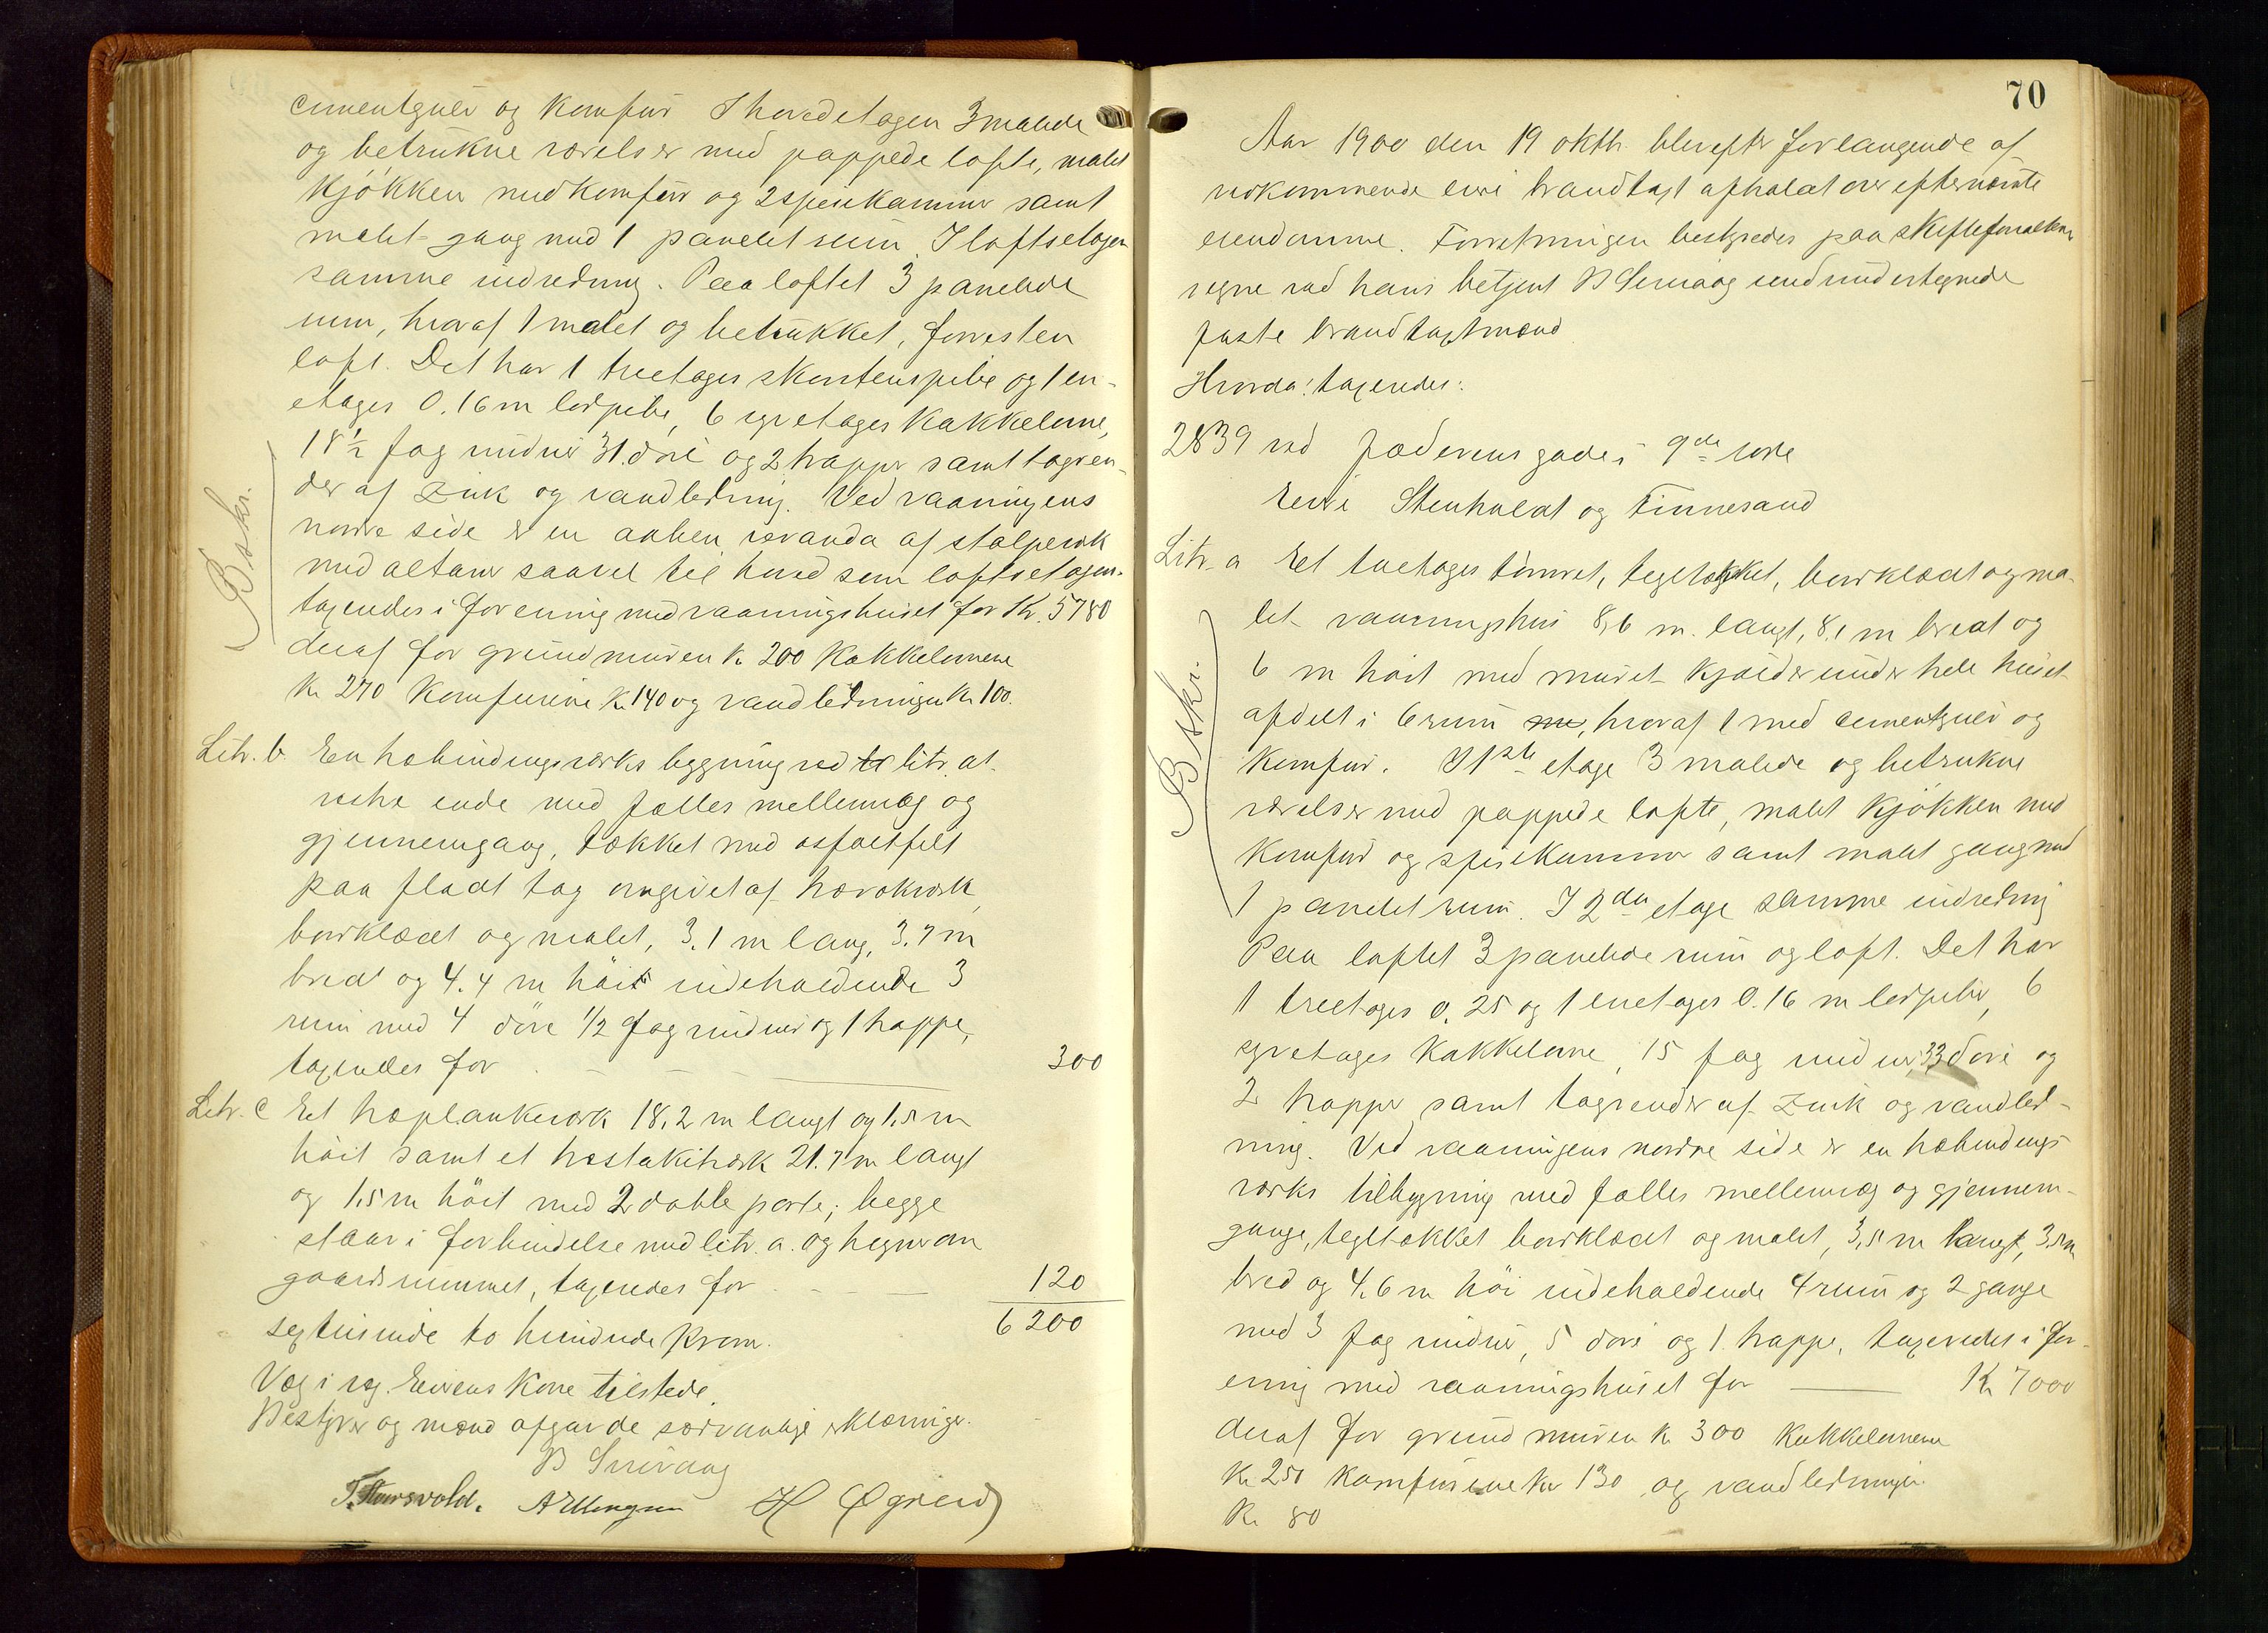 cementgulv og komfur I hovedetagen 3 malede
og betrukne værelser med pappede lofte, malet
kjökken med komfur og 2 spisekammer samt
malet gang med 1 panelet rum. I loftsetagen
samme indredning. Paa loftet 3 panelede
rum, hvoraf 1 malet og betrukket, forresten
loft. Det har 1 treetages skorstenspibe og 1 en-
etages 0.16 m lerpibe, 6 syvetages kakkelovne,
18½ fag vinduer 31 döre og 2 trapper samt tagren-
der af zink og vandledning. Ved vaaningens
nordre side er en aaben veranda af stolpeverk
med altaner saavel til hoved som loftsetagen.
taxeredes i forening med vaaningshuset for Kr. 5780
deraf for grundmuren kr 200 kakkelovnene
kr 270 komfurene kr 140 og vandledningen kr 100.
Bskr.
Litr. b. En træbindingsverks bygning ved litr. a's
vestre ende med fælles mellemvæg og
gjennemgang, tækket med asfaltfilt
paa fladt tag omgivet af trærækverk,
bordklædt og malet, 3.1 m lang, 3.7 m
bredt og 4.4 m höit indeholdende 3
rum med 4 döre ½ fag vinduer og 1 trappe,
taxeredes for - - 300
Litr. c Et træplankeverk 18,2 m langt og 1,5 m
höit samt et træstakitverk 21.7 m langt
og 1,5 m höit med 2 doble porte; begge
staar i forbindelse med litr. a. og hegner om
gaardsrummet, taxeredes for - - 120
6200
sextusinde to hundrede kroner.
Væg i væg. Eierens kone tilstede.
Bestyrer og mænd afgav de sedvanlige erklæringer.
B Sviraag
T. Thorsvold. A Ellingsen H Øgreid
70
Aar 1900 den 19 oktbr. blev efter forlangende af
vedkommende eiere brandtaxt afholdt over efternævnte
eiendomme. Forretningen bestyredes paa skifteforvalterens
vegne ved hans betjent B Sviraag med undertegnede
faste brandtaxtmænd
Hvorda: taxeredes:
2839 ved Jæderens gade i 9de rode
Eiere Stenholdt og Finnesand
Litr. a Et toetages tömret, tegltækket, bordklædt og ma-
let vaaningshus 8,6 m. langt, 8,1 m bredt og
6 m höit med muret kjælder under hele huset
afdelt i 6 rum, hvoraf 1 med cementgulv og
komfur. I 1ste etage 3 malede og betrukne
værelser med pappede lofte, malet kjökken med
komfur og spisekammer samt malet gang med
1 panelet rum. I 2den etage samme indredning
Paa loftet 3 panelede rum og loft. Det har
1 treetages 0,25 og 1 enetages 0.16 m lerpiber, 6
syvetages kakkelovne, 15 fag vinduer, 33 döre og
2 trapper samt tagrender af zink og vandled-
ning. Ved vaaningens nordre side er en træbindings
verks tilbygning med fælles mellemvæg og gjennem-
gange, tegltækket bordklædt og malet, 3,5 m langt, 3,5 m
bred og 4,6 m höi indeholdende 4 rum og 2 gange
med 3 fag vinduer, 5 döre og 1 trappe, taxeredes i for-
ening med vaaningshuset for Kr 7000
deraf for grundmuren kr 300 kakkelovnene
kr 250 komfurene kr 130 og vandledningen
kr 80
Bskr.